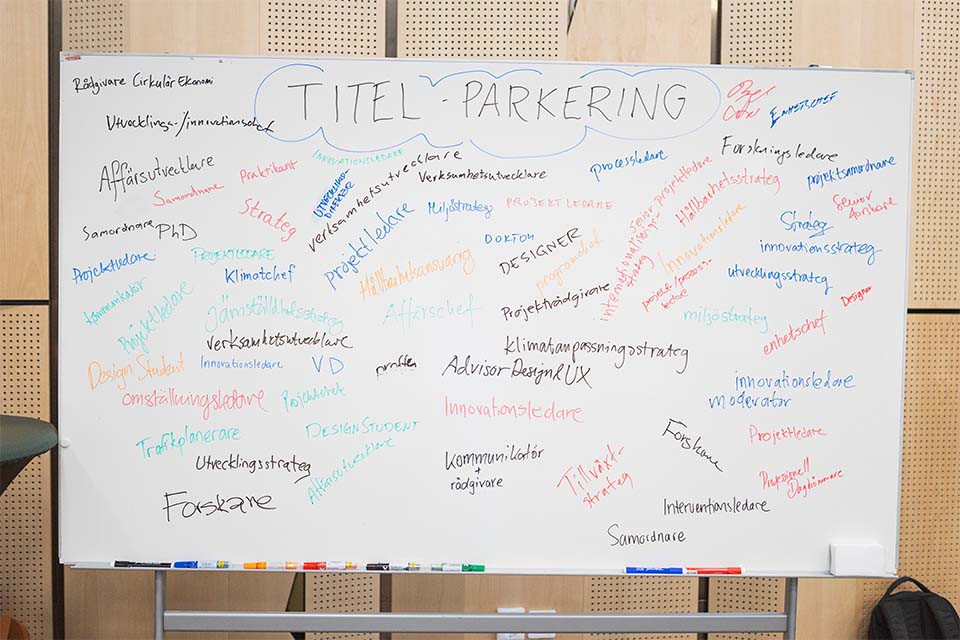 Rådgivare Cirkulär Ekonomi
TITEL-PARKERING
ENHETSCHEF
Utvecklings-/innovationschef
Forskningsledare
Affärsutvecklare
Samordnare
Praktikant
INNOVATIONSLEDARE
UTVECKLINGS-
DIREKTÖR
verksamhetsutvecklare
Verksamhetsutvecklare
processledare
projektsamordnare
Senior
forskare
Hållbarhetsstrateg
Senior projektledare
Internationaliserings-
strateg
Strateg
Samordnare
PhD
projektledare
Miljöstrateg
PROJEKTLEDARE
Innovationsledare
Strateg
innovationsstrateg
Projektledare
PROJEKTLEDARE
Klimatchef
Hållbarhetsansvarig
DOKTOR
DESIGNER
programchef
projekt-/process-
ledare
utvecklingsstrateg
Designer
Kommunikatör
Projektledare
Jämställdhetsstrateg
Affärschef
Projektrådgivare
miljöstrateg
enhetschef
verksamhetsutvecklare
Klimatanpassningsstrateg
Design Student
Innovationsledare
VD
Advisor Design & UX
innovationsledare
moderator
omställningsledare
Innovationsledare
Trafikplanerare
DESIGN STUDENT
Affärsutvecklare
Forskare
Projektledare
Utvecklingsstrateg
Kommunikatör
+
rådgivare
Tillväxt-
strateg
Professionell
Dagdrömmare
Forskare
Interventionsledare
Samordnare